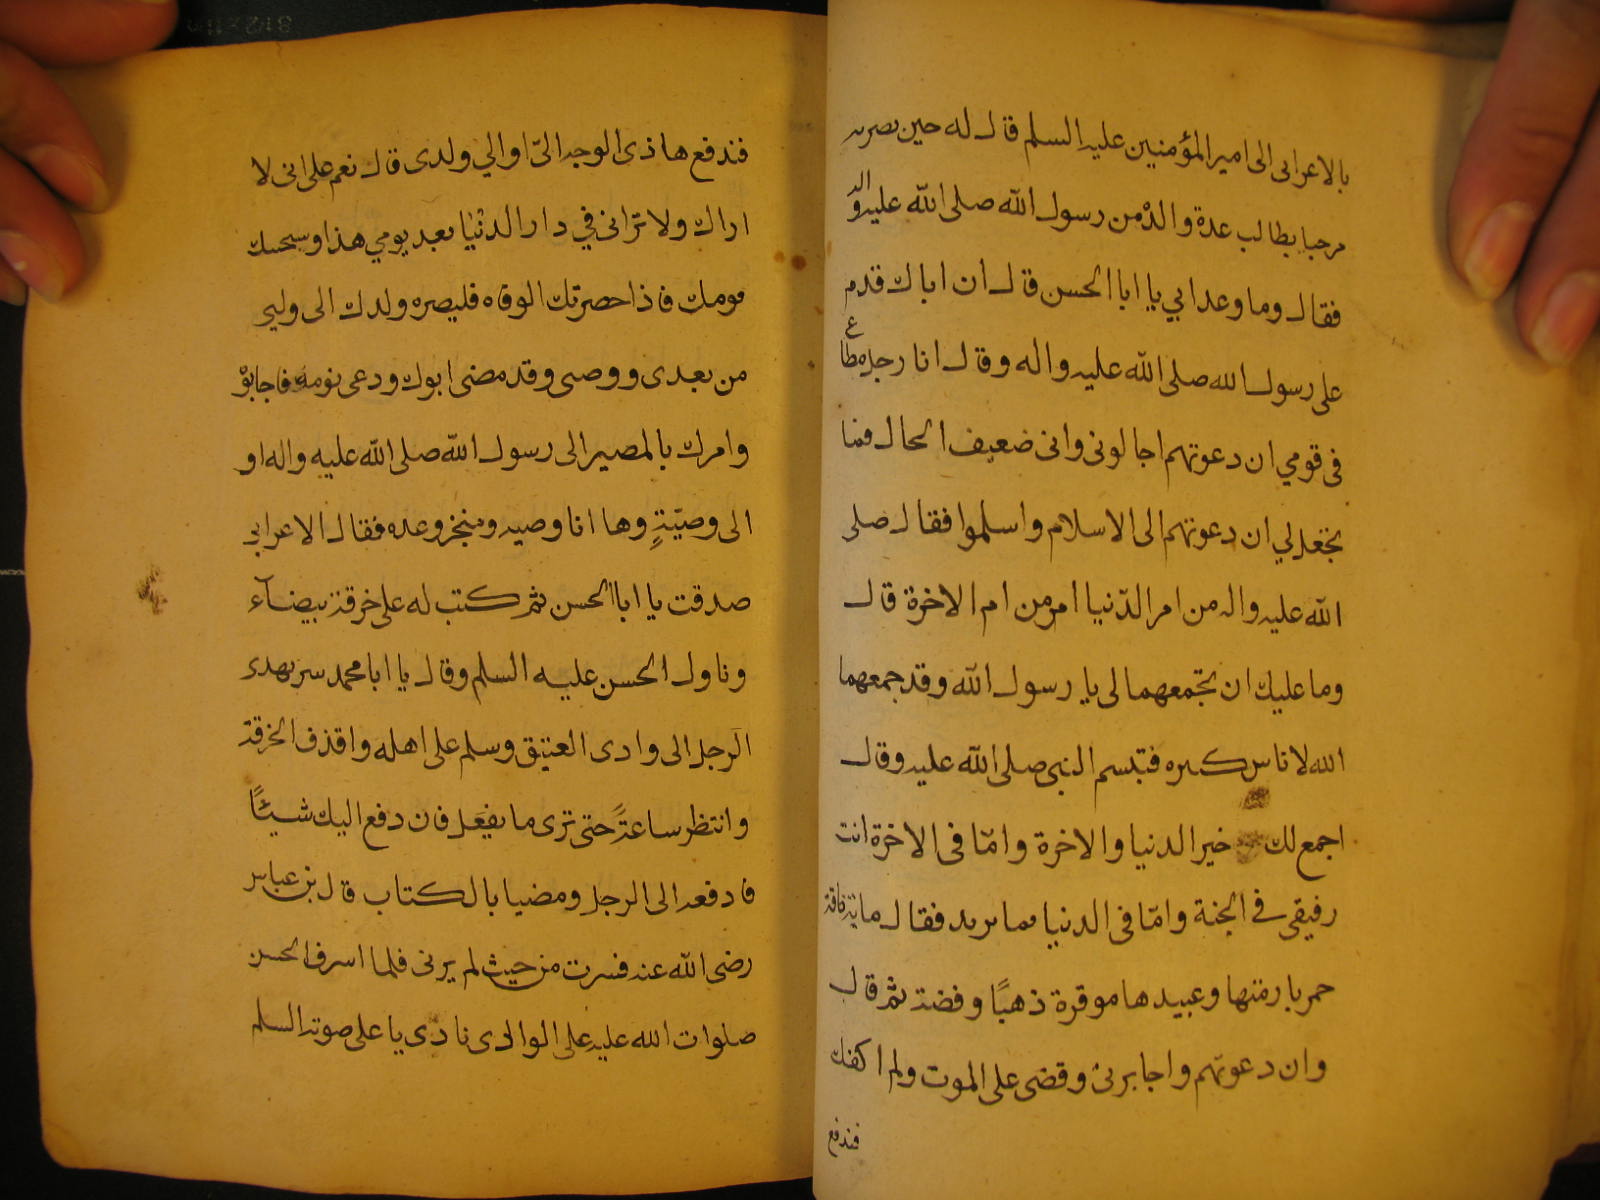 بالاعرابى الى امير المؤمنين عليه السلم قال له حين بصر به
مرحبا بطالب عدة والده من رسول الله صلى الله عليه واله
فقال وما وعد ابي يا ابا الحسن قال ان اباك قدم
على رسول الله صلى الله عليه واله وقال انا رجل مطاع
فى قومي ان دعوتهم اجابونى وانى ضعيف الحال فما
تجعل لي ان دعوتهم الى الاسلام واسلموا فقال صلى
الله عليه واله من امر الدّنيا امر من ام الاخرة قال
وما عليك ان تجمعهما لى يا رسول الله وقد جمعهما
الله لاناس كثيره فتبسم النبى صلى الله عليه وقال
اجمع لك خير الدنيا والاخرة وامّا فى الاخرة انت
رفيقى في الجنة وامّا فى الدنيا فما تريد فقال مائة ناقة
حمر بازمتها وعبيدها موقرة ذهبًا وفضة ثم قال
وان دعوتهم واجابونى وقضى على الموت ولم اكفك
فندفع
فندفع هاذى الوجه الىّ او الي ولدى قال نعم على انى لا
اراك ولا ترانى في دار الدنيا بعد يومي هذا وسيجيبك
قومك فاذا حضرتك الوفاه فليصره ولدك الى وليى
من بعدى ووصى وقد مضى ابوك ودعى قومه فاجابوه
وامرك بالمصير الى رسول الله صلى الله عليه واله او
الى وصيّهِ وها انا وصيه ومنجز وعده فقال الاعرابي
صدقت يا ابا الحسن ثم كتب له على خرقة بيضآء
وناول الحسن عليه السلم وقال يا ابا محمد سر بهذه
الرجل الى وادى العتيق وسلم على اهله واقذف الخرقة
وانتظر ساعةً حتى ترى ما يفعل فان دفع اليك شيئًا
فادفعه الى الرجل ومضيا بالكتاب قال بن عباس
رضى الله عنه فسرت من حيث لم يرنى فلما اشرف الحسن
صلوات الله عليه على الوادى نادى باعلى صوته السلم